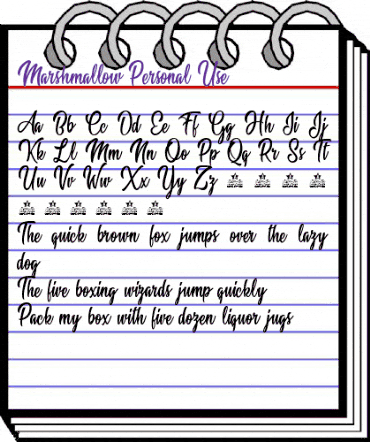 Marshmallow Personal Use
Aa Bb Cc Dd Ee Ff Gg Hh Ii Jj
Kk Ll Mm Nn Oo Pp Qq Rr Ss Tt
Uu Vv Ww Xx Yy Zz
The quick brown fox jumps over the lazy
dog
The five boxing wizards jump quickly
Pack my box with five dozen liquor jugs